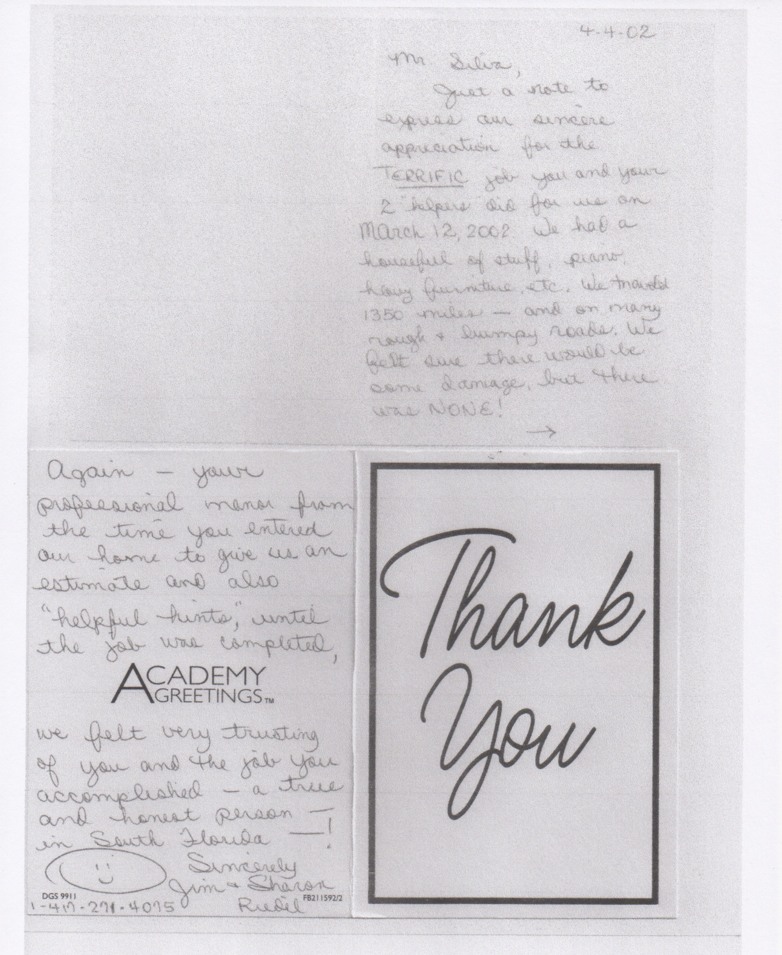 4-4-02
Mr. Silva,
Just a note to
express our sincere
appreciation for the
TERRIFIC job you and your
2 helpers did for us on
MArch 12, 2002. We had a
houseful of stuff, piano,
heavy furniture, etc. We traveled
1350 miles — and on many
rough & bumpy roads. We
felt sure there would be
some damage, but there
was NONE!
→
Again — your
professional manor from
the time you entered
our home to give us an
estimate and also
"helpful hints," until
the job was completed,
ACADEMY
GREETINGS™
we felt very trusting
of you and the job you
accomplished — a true
and honest person —
in South Florida —!
Sincerely
Jim & Sharon
Riedel
DGS 9911
FB211592/2
Thank
You